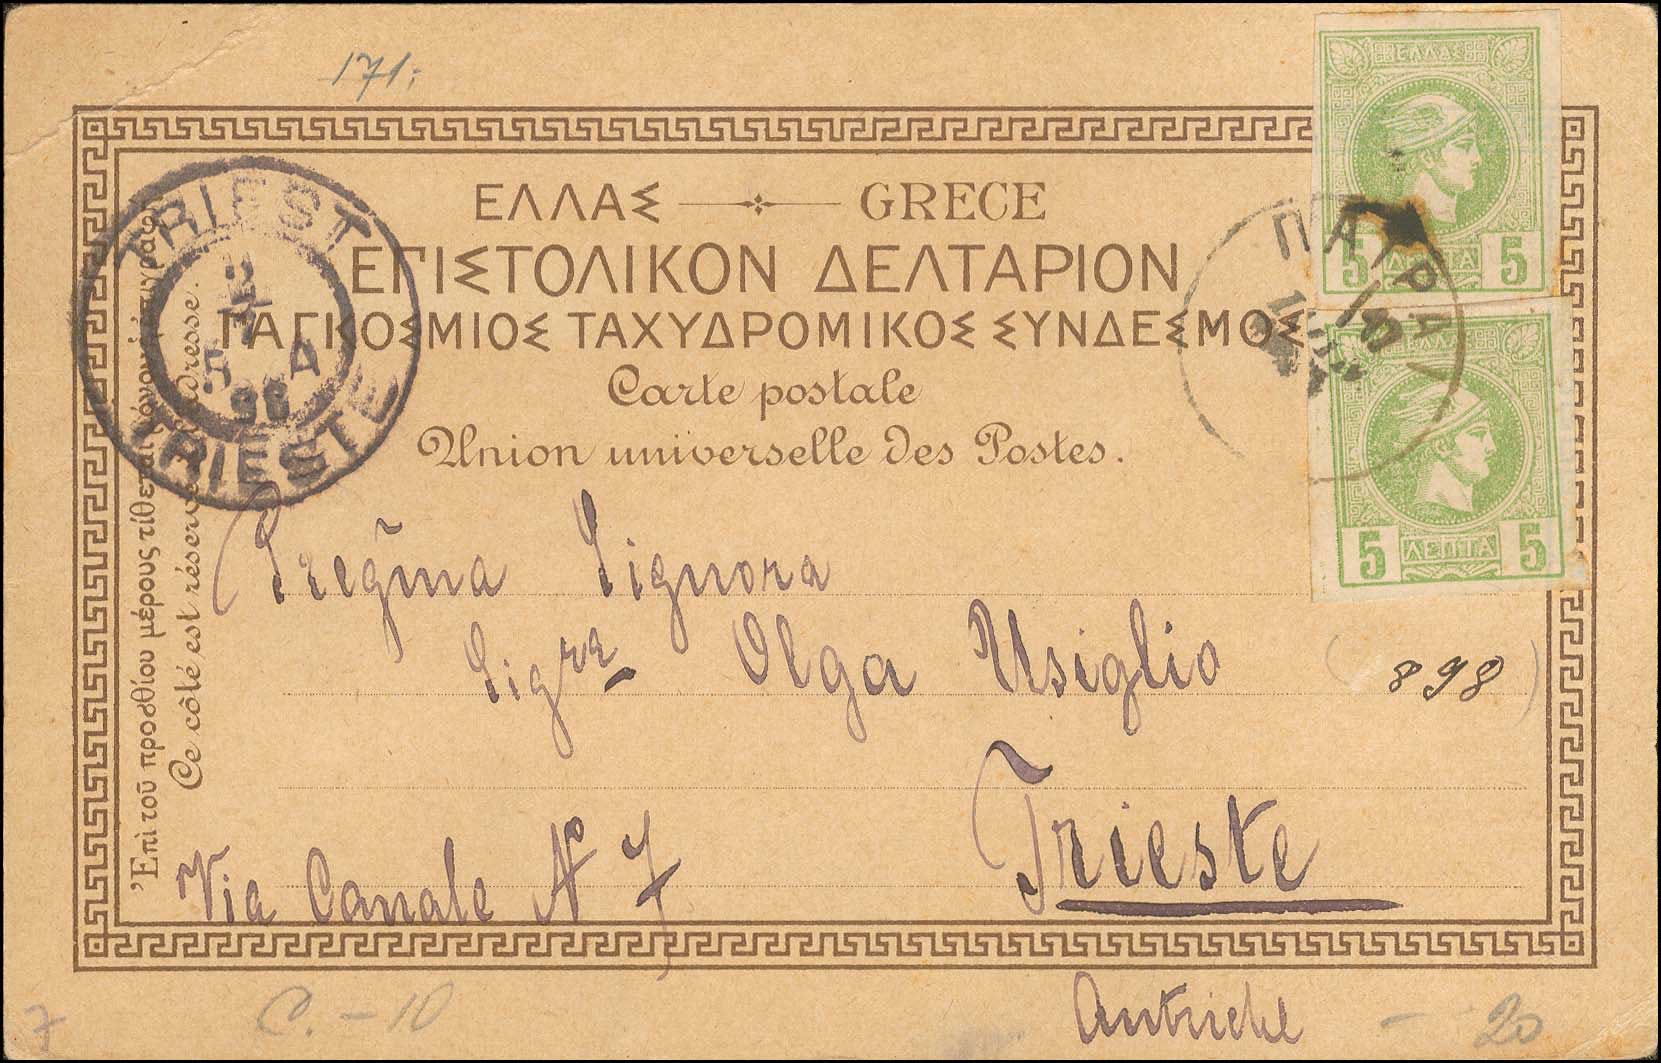 171.
ΕΛΛΑΣ
GRECE
ΕΠΙΣΤΟΛΙΚΟΝ ΔΕΛΤΑΡΙΟΝ
ΠΑΓΚΟΣΜΙΟΣ ΤΑΧΥΔΡΟΜΙΚΟΣ ΣΥΝΔΕΣΜΟΣ
Carte postale
Union universelle des Postes.
Ἐπὶ τοῦ προσθίου μέρους τίθεται μόνον ἡ ἐπιγραφή
Ce côté est réservé à l'adresse.
TRIEST
5 A
98
TRIESTE
ΠΑΤΡΑΙ
ΕΛΛΑΣ
5 ΛΕΠΤΑ 5
ΕΛΛΑΣ
5 ΛΕΠΤΑ 5
Pregma Signora
Sigra Olga Usiglio
898
Trieste
Via Canale No 7
Autriche
7
C. - 10
- 20